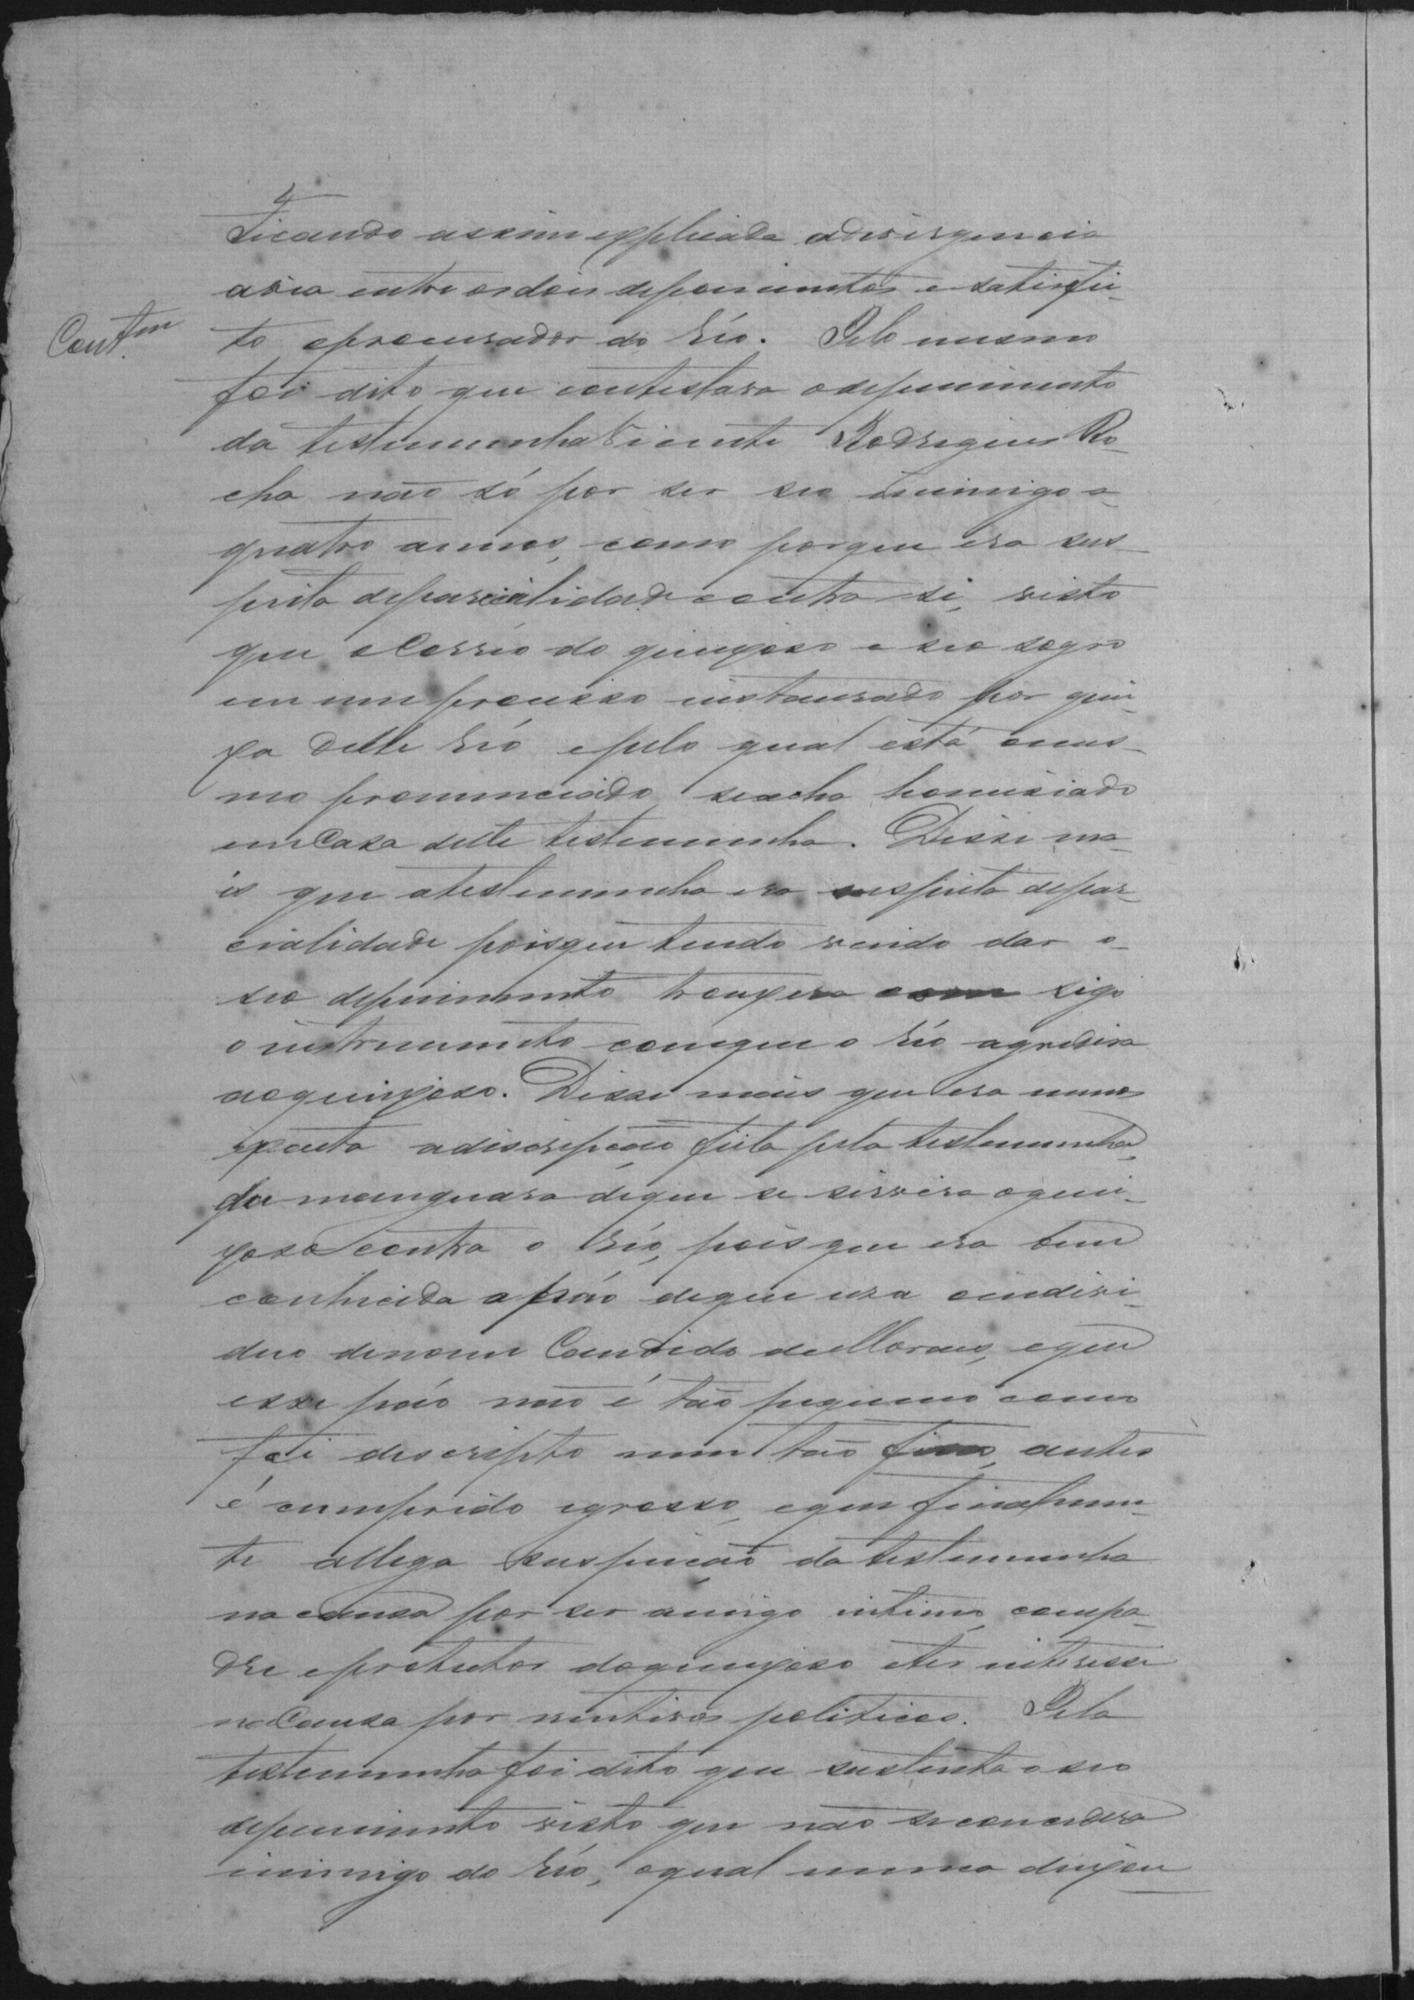 Ficando assim explicada a divirgencia
avia entre os dois depoimentos e satisfei-
Cont.am
to o procurador do Réo. Pelo mesmo
foi dito que contestava o depoimento
da testemunha Vicente Rodrigues Ro-
cha não só por ser seo inimigo a
quatro annos, como porque era sus-
peita de parcialidade contra si, visto
que o Corréo do queixoso e seo sogro
em um processo instaurado por quei-
xa deste Réo e pelo qual está o mes-
mo pronunciado se acha homisiado
em Casa desta testemunha. Disse ma-
is que a testemunha era suspeita de par-
cialidade pois que tendo vindo dar o
seo depoimento trouxera com sigo
o instrumento com que o Réo agredira
ao queixoso. Disse mais que era menos
exacta a discripção feita pela testemunha,
da manguara de que se servira o quei-
xoso contra o Réo, pois que era bem
conhecida a páo de que usa o indivi-
duo de nome Candido de Moraes, e que
esse páo não é tão pequeno como
foi descripto nem tão fino, antes
é cumprido e grosso, e que finalmen-
te allega suspeição da testemunha
na causa por ser amigo intimo, compa-
dre e protector do queixoso e ter interesse
na Causa por motivos politicos. Pela
testemunha foi dito que sustenta o seo
depoimento visto que não se considera
inimigo do Réo, o qual nunca deixou